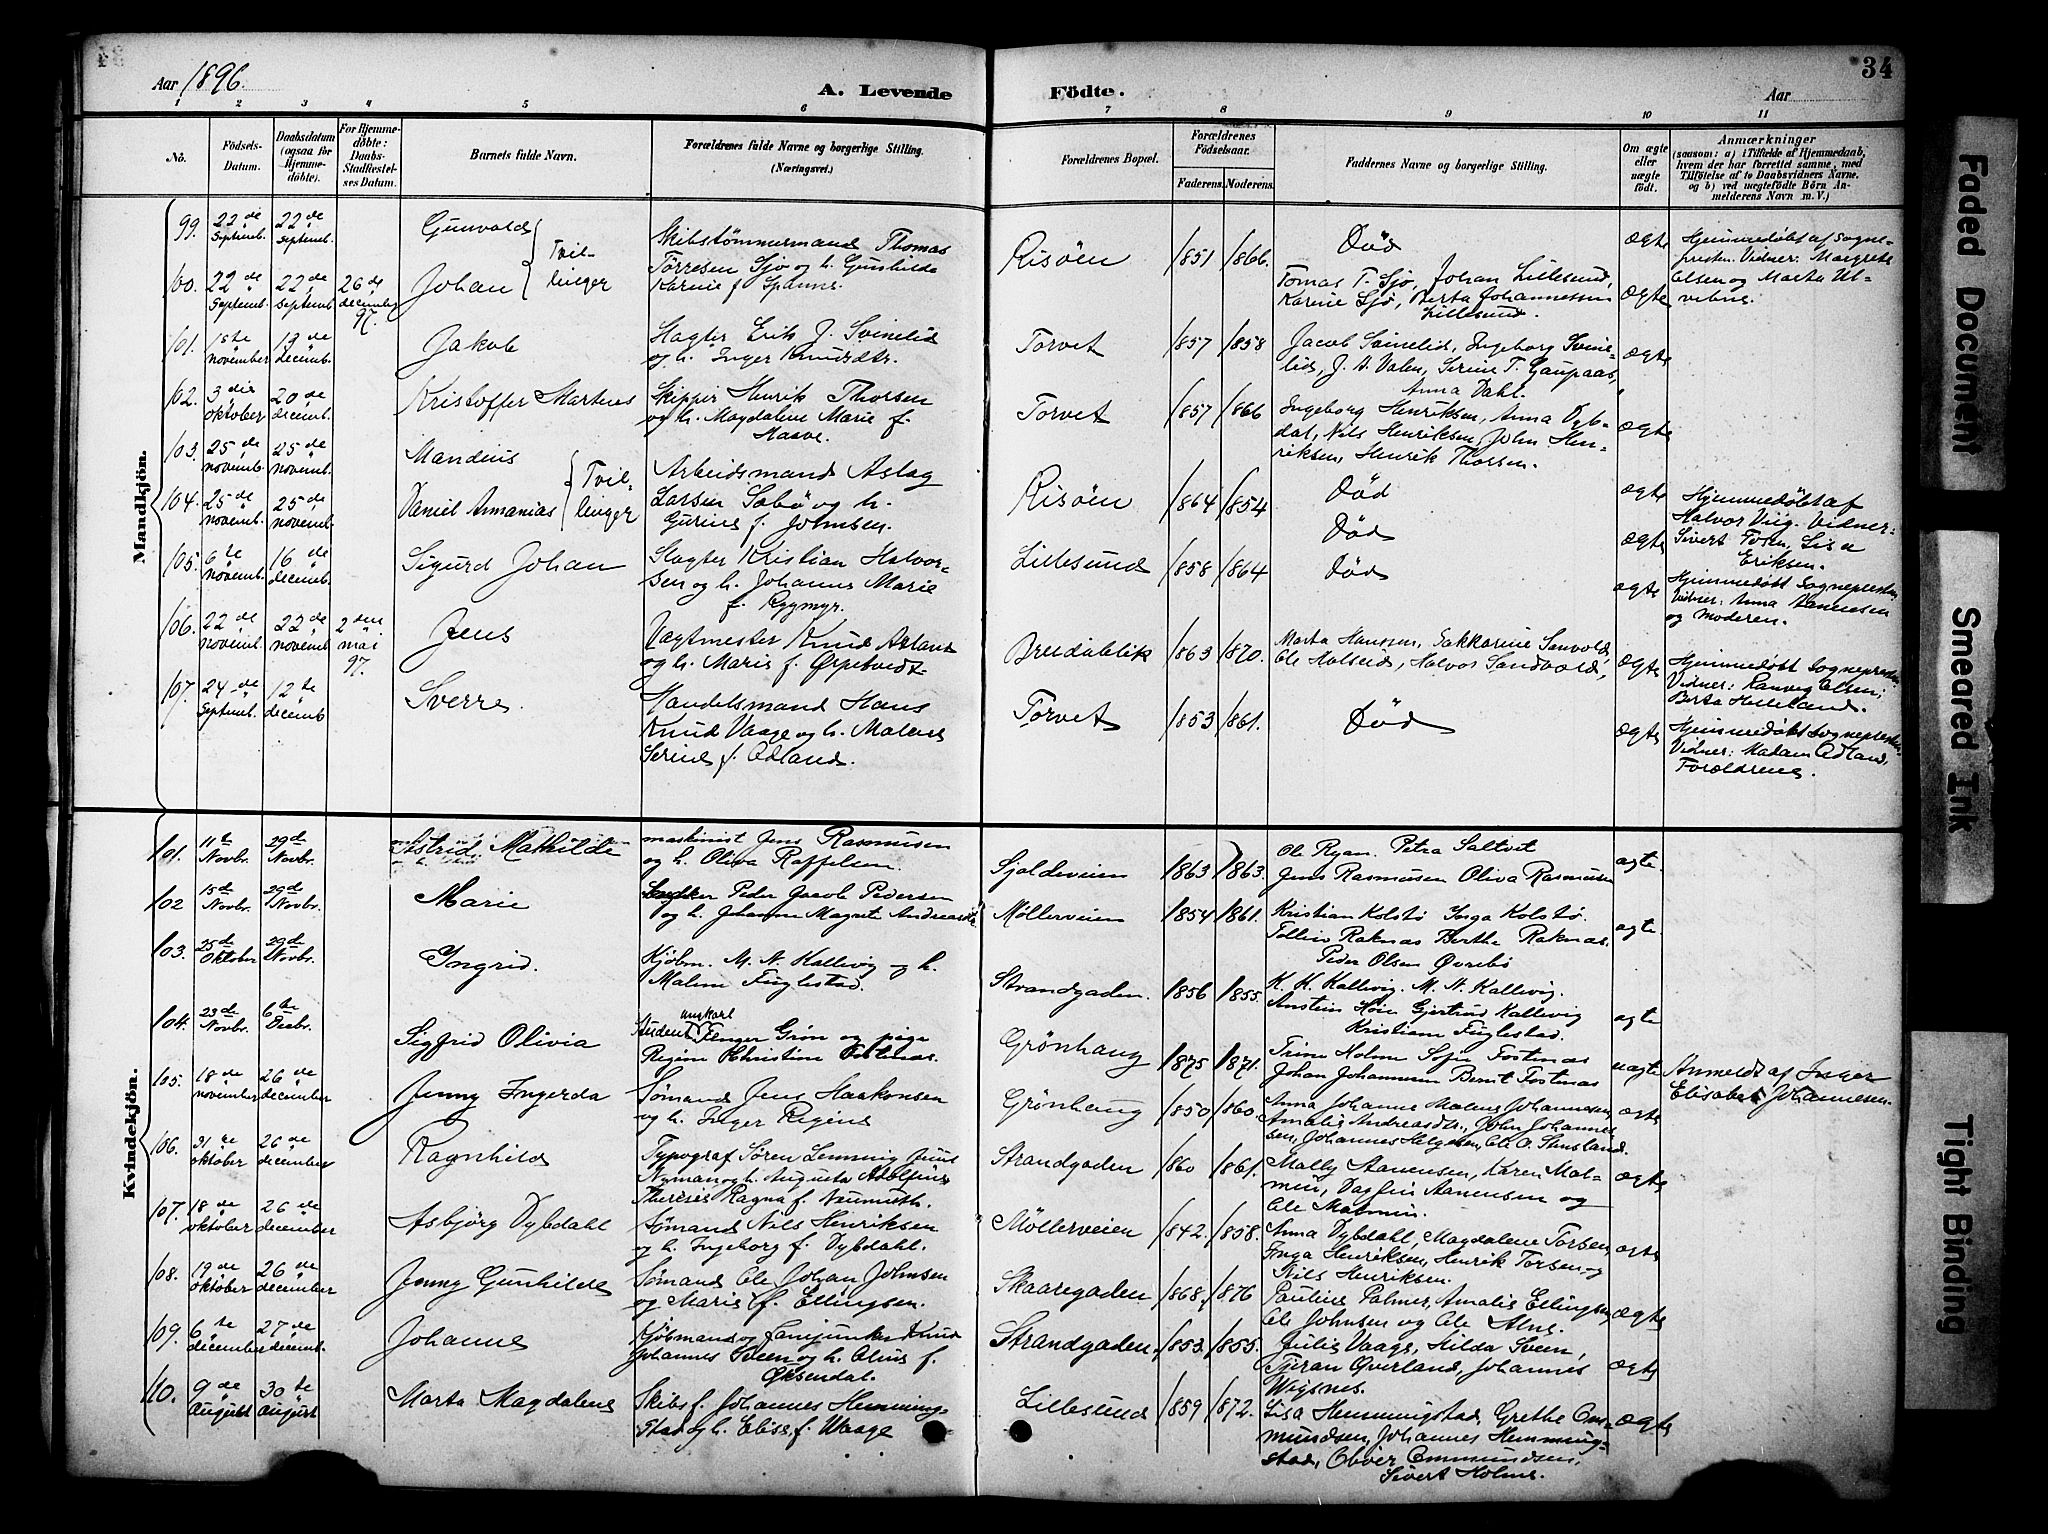 34
Aar 1896.
A. Levende
Födte.
Aar
1 2 3 4 5 6 7 8 9 10 11
No.
Födsels-
Datum.
Daabsdatum
(ogsaa for
Hjemme-
döbte).
For Hjemme-
döbte:
Daabs-
Stadfæstel-
ses Datum.
Barnets fulde Navn.
Forældrenes fulde Navne og borgerlige Stilling.
(Næringsvei.)
Forældrenes Bopæl.
Forældrenes
Födselsaar.
Faderens. Moderens.
Faddernes Navne og borgerlige Stilling.
Om ægte
eller
uægte
født.
Anmærkninger
(saasom: a) i Tilfælde af Hjemmedaab,
hvem der har forrettet samme, med
Tilföielse af to Daabsvidners Navne,
og b) ved uægtefödte Börn An-
melderens Navn m. V.)
Mandkjön.
99. 22de Septemb. 22de Septemb. Gunvald Tvil-
linger
Skibstømmermand Thomas
Torresen Sjø og h. Gunhilda
Karine f. Spanne.
Risöen 1851 1866. Död ægte
Hjemmedöbt af Sogne-
presten. Vidner: Margrete
Olsen og Marta Ul-
100. 22de Septemb. 22de Septemb. 26de december 97. Johan
Tomas T. Sjø, Johan Lillesund,
Karine Sjø, Berta Johannessen
Lillesund. ægte
101. 1ste november 19de decemb. Jakob
Slagter Erik J. Svinelid
og h. Inger Knudsdtr.
Torvet 1857 1858
Jacob Svinelid, Ingeborg Svine-
lid, J. A. Valen, Serine T. Gaupaas,
Anna Dahl. ægte
102. 3die oktober 20de decemb. Kristoffer Martens
Skipper Henrik Thorsen
og h. Magdalene Marie f.
Haave.
Torvet 1857 1866
Ingeborg Henriksen, Anna Dyb-
dal, Nils Henriksen, John Hen-
riksen, Henrik Thorsen. ægte
103. 25de novemb. 25de novemb. Mandius Tvil-
linger
104. 25de novemb. 25de novemb. Daniel Annanias
Arbeidsmand Aslag
Larsen Sabö og h.
Gurine f. Johnsen.
Risöen 1864 1854 Död ægte
Död ægte
Hjemmedöbt af
Halvor Viig. Vidner:
Sivert Tveen, Lisa
Eriksen.
105. 6te novemb. 16de decemb. Sigurd Johan
Slagter Kristian Halvor-
sen og h. Johanne Marie
f. Rygmyr.
Lillesund 1858 1864 Död ægte
Hjemmedöbt Sognepresten
Vidner: Anna Aanensen
og Moderen.
106. 22de novemb. 22de novemb. 2den mai 97. Jens
Vagtmester Knud Asland
og h. Marie f. Ørpetvedt
Breidablik 1863 1870.
Marta Hanssen, Sakkarine Sanvold,
Ole Halseid, Halvor Sandvold, ægte
Hjemmedöbt Sognepresten
Vidner: Ranveg Olsen,
Berta Helleland.
107. 24de Septemb. 12te decemb. Sverre.
Handelsmand Hans
Knud Vaage og h. Malene
Serine f. Ødland.
Torvet 1853 1861. Död ægte
Hjemmedöbt Sognepresten
Vidner: Madam Ødland,
Forældrene.
Kvindekjön.
101. 11te Novbr. 29de Novbr. Astrid Mathilde
maskinist Jens Rasmusen
og h. Oliva Raffelsen.
Sjoldeveien 1863 1863.
Ole Ryan. Petra Saltvet
Jens Rasmusen Oliva Rasmusen ægte.
102 15de Novbr. 29de Novbr. Marie
Peder Jacob Pedersen
og h. Johanne Magret Andreasdtr.
Møllerveien 1854 1861.
Kristian Kolstø Inga Kolstø.
Tollein Raknas Berthe Raknas.
Peder Olsen Øvrebø ægte.
103. 25de Oktober 29de Novbr. Ingrid.
Kjøbm. M. N. Kallevig og h.
Malene Fuglestad.
Strandgaden. 1856 1855.
K. K. Kallevig. M. N. Kallevig.
Anstein Høie Gjertrud Kallevig
Kristiane Fuglestad. ægte
104. 23de Novbr. 6te Decbr. Sigfrid Olivia
Student ungkarl Fenger Grøn og pige
Regine Christine Fostenas.
Grönhaug 1875 1871.
Trine Holm Sofie Fostenas
Johan Johannesen Bernt Fostenas uægte
Anmeldt af Inger
Elisabet Johannesen.
105. 18de november 26de december Jenny Ingerda
Sømand Jens Haakonsen
og h. Inger Regine
Grönhaug 1850 1860.
Anna Johanne Malene Johannesen,
Amalie Andreasdtr., John Johannes-
sen, Johannes Helgesen, Ole O. Stensland. ægte
106. 31te oktober 26de december Ragnhild
Typograf Søren Lemmig Juul
Nyman og h. Augusta Adolfine
Therese Ragna f. Naumuth.
Strandgaden 1860 1861.
Mally Aanensen, Karen Mal-
min, Dagfin Aanensen og
Ole Malmin. ægte
107. 18de oktober 26de december Asbjörg Dybdahl
Sømand Nils Henriksen
og h. Ingeborg f. Dybdahl.
Möllerveien 1842. 1858.
Anna Dybdahl, Magdalene Torsen,
Inga Henriksen, Henrik Torsen og
Nils Henriksen. ægte
108. 19de oktober 26de december Jenny Gunhilde
Sømand Ole Johan Johnsen
og Marie f. Ellingsen.
Skaaregaden 1868. 1876
Pauline Palmer, Amalie Ellingsen
Ole Johnsen og Ole Alne. ægte
109. 6te december 27de decemb. Johanne
Kjöbmand og fanejunker Knud
Johannes Sveen og h. Oline f.
Øksendal.
Strandgaden. 1853. 1855.
Julie Vaage, Hilda Sveen,
Tjeran Qverland, Johannes
Wigsnes. ægte
110. 9de august 30te august Marta Magdalene
Skibsf. Johannes Hemming-
stad og h. Elise f. Waage
Lillesund 1859 1872.
Lisa Hemmingstad, Grethe Om-
mundsen, Johannes Hemming-
stad, Oliver Ommundsen,
Sivert Holme. ægte
Faded Document
Smeared Ink
Tight Binding